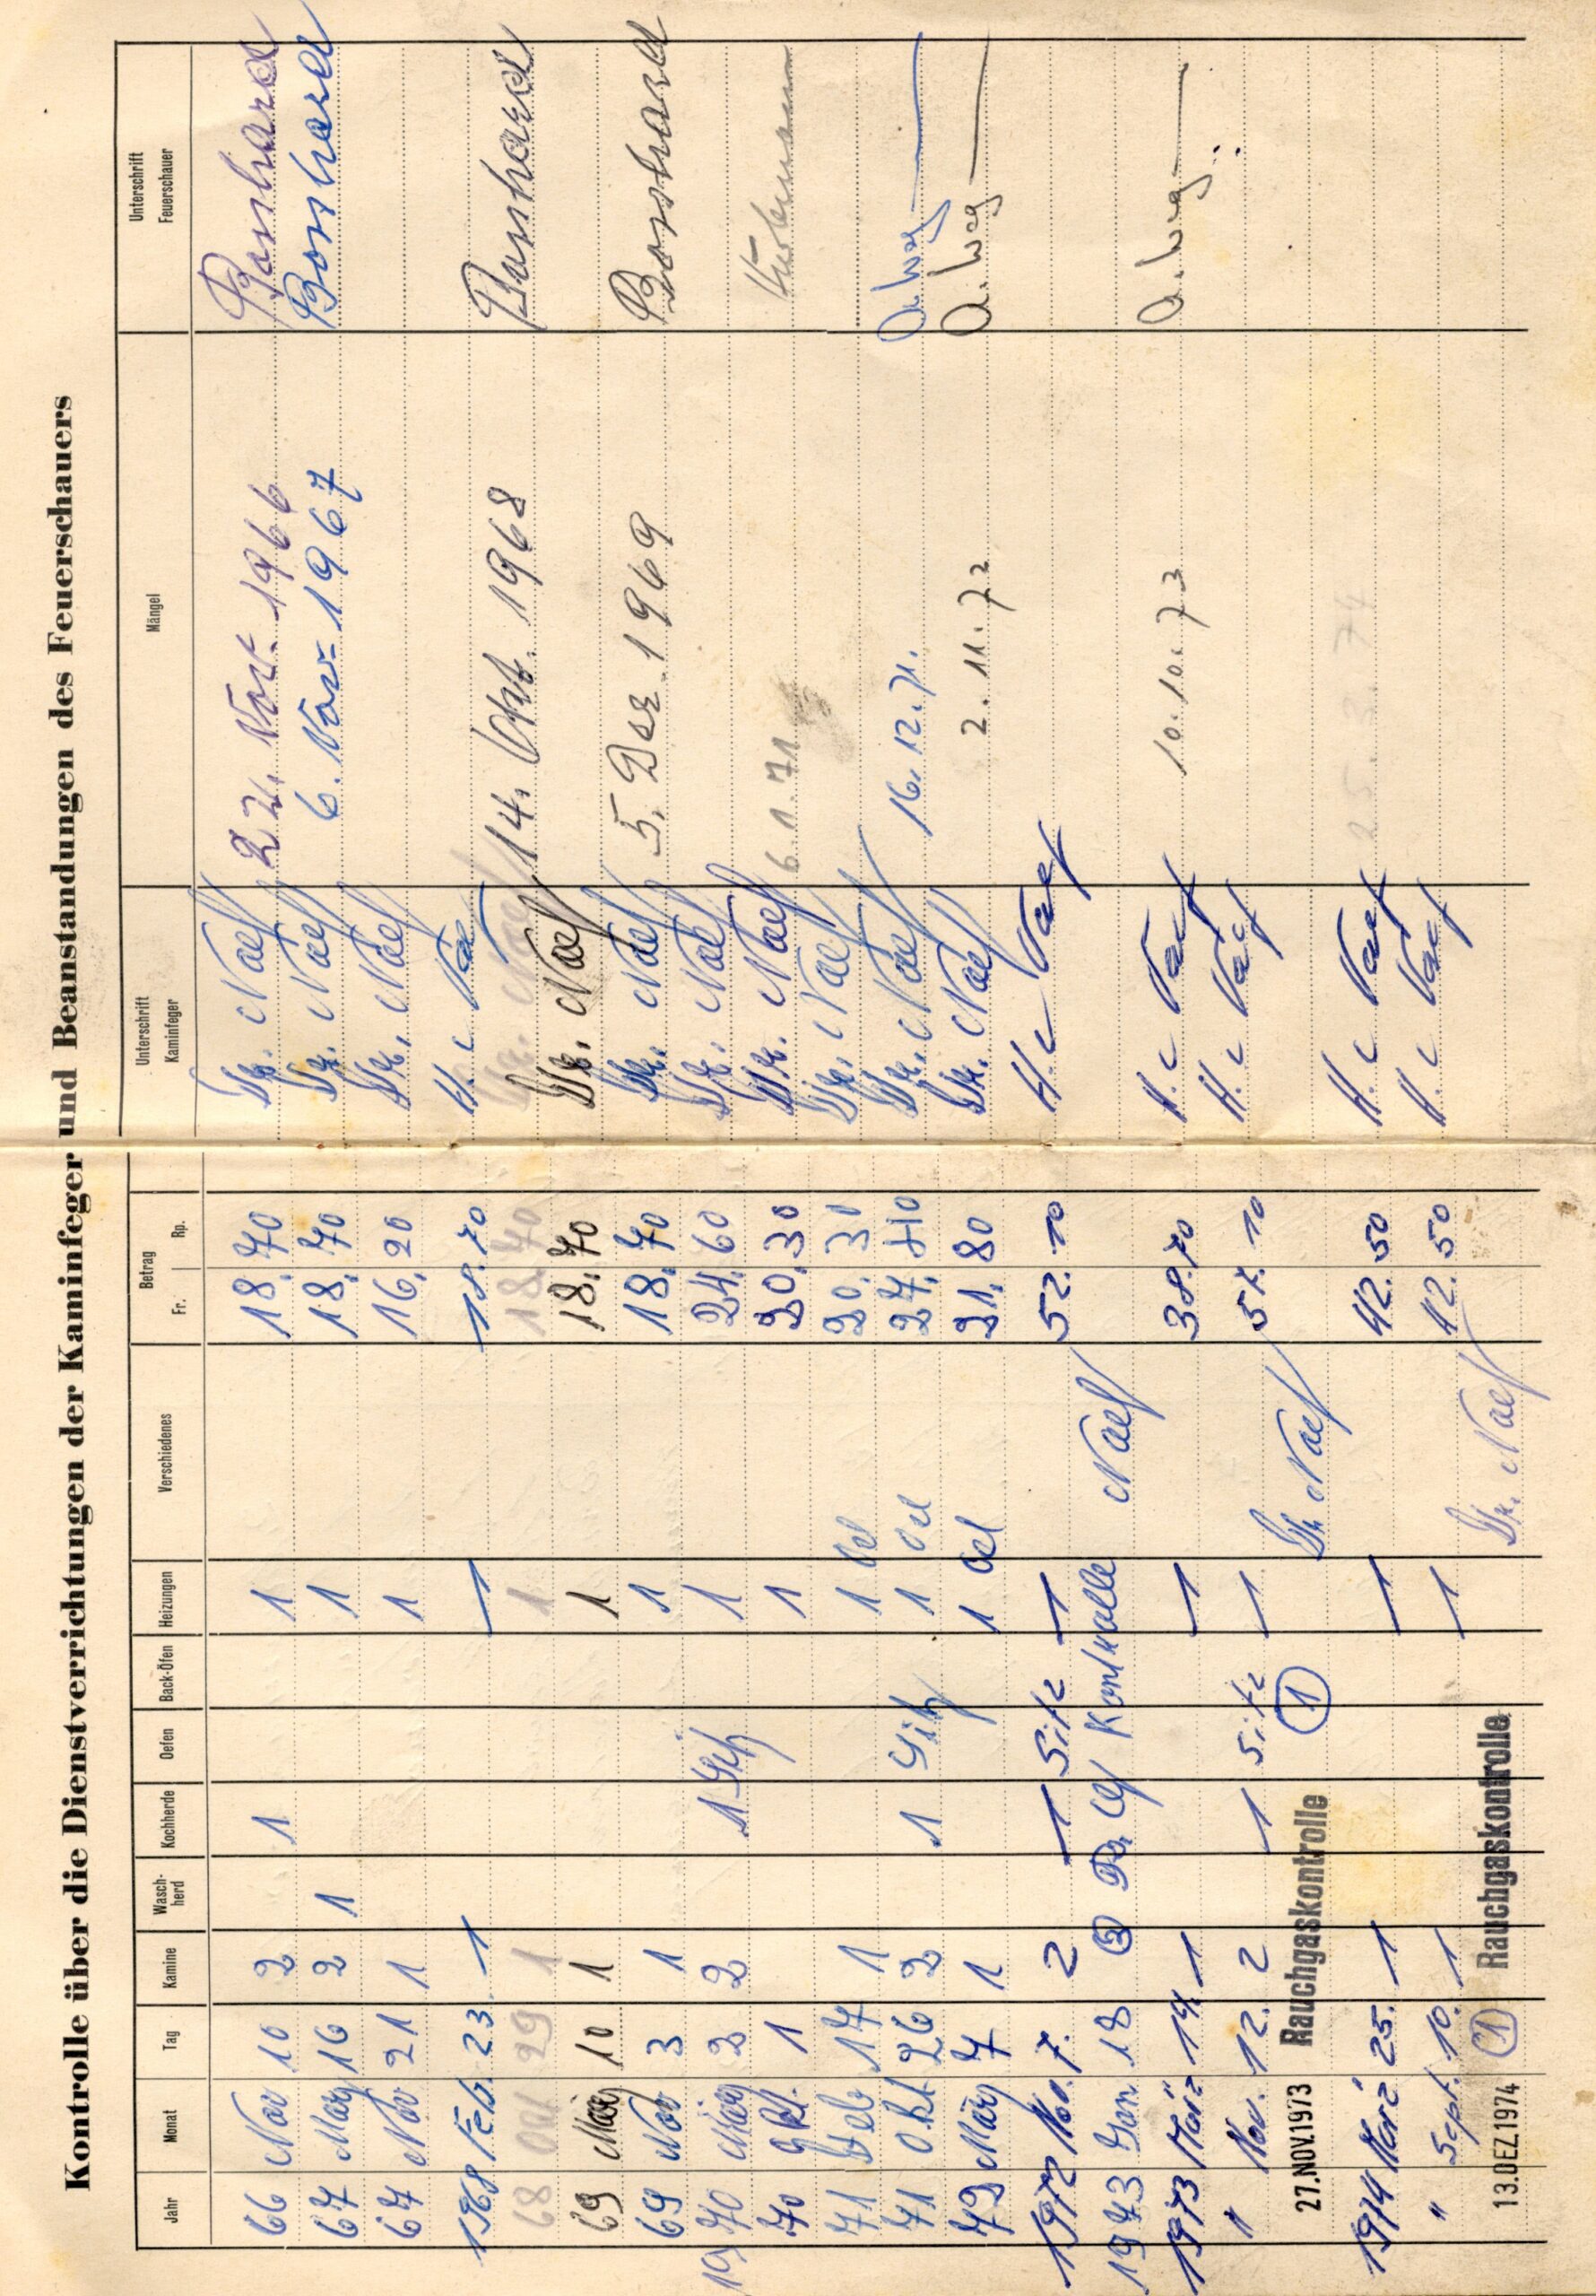 Kontrolle über die Dienstverrichtungen der Kaminfeger und Beanstandungen des Feuerschauers
Jahr Monat Tag Kamine Wasch-herd Kochherde Oefen Back-Öfen Heizungen Verschiedenes Betrag Fr. Rp. Unterschrift Kaminfeger Mängel Unterschrift Feuerschauer
66 Nov 10 2 1 1 18.70 Naef Nov. 1966 Bosshard
67 März 16 2 1 1 18.70 Naef 6. Nov= 1967 Bosshard
67 Nov 21 1 1 16.20 Naef
1968 Feb. 23. 1 1 18.70 H. Naef
68 Okt 29 1 1 18.70 Naef 14. Okt. 1968 Bosshard
69 März 10 1 1 18.70 Naef
69 Nov 3 1 1 18.70 Naef 5. Dez 1969 Bosshard
1970 März 2 2 1 Sitz 1 24.60 Naef
70 Okt. 1 1 20.30 Naef 6.1.71
71 Feb 17 1 1 Oel 20.30 Naef
71 Okt 26 2 1 Sitz 1 Oel 27.40 Naef 16.12.71.
72 März 7 1 1 Oel 21.80 Naef 2.11.72
1972 Nov. 7. 2 1 Sitz 1 52.10 H. Naef
1973 Jan 18 Kontrolle Naef
1973 März 14. 1 1 38.70 H. Naef 10.10.73
" Nov. 12. 2 1 Sitz 1 57.10 H. Naef
27.NOV.1973 Rauchgaskontrolle 1 Naef
1974 März 25. 1 1 42.50 H. Naef 25.3.74
" Sept. 10. 1 1 42.50 H. Naef
13.DEZ.1974 1 Rauchgaskontrolle Naef